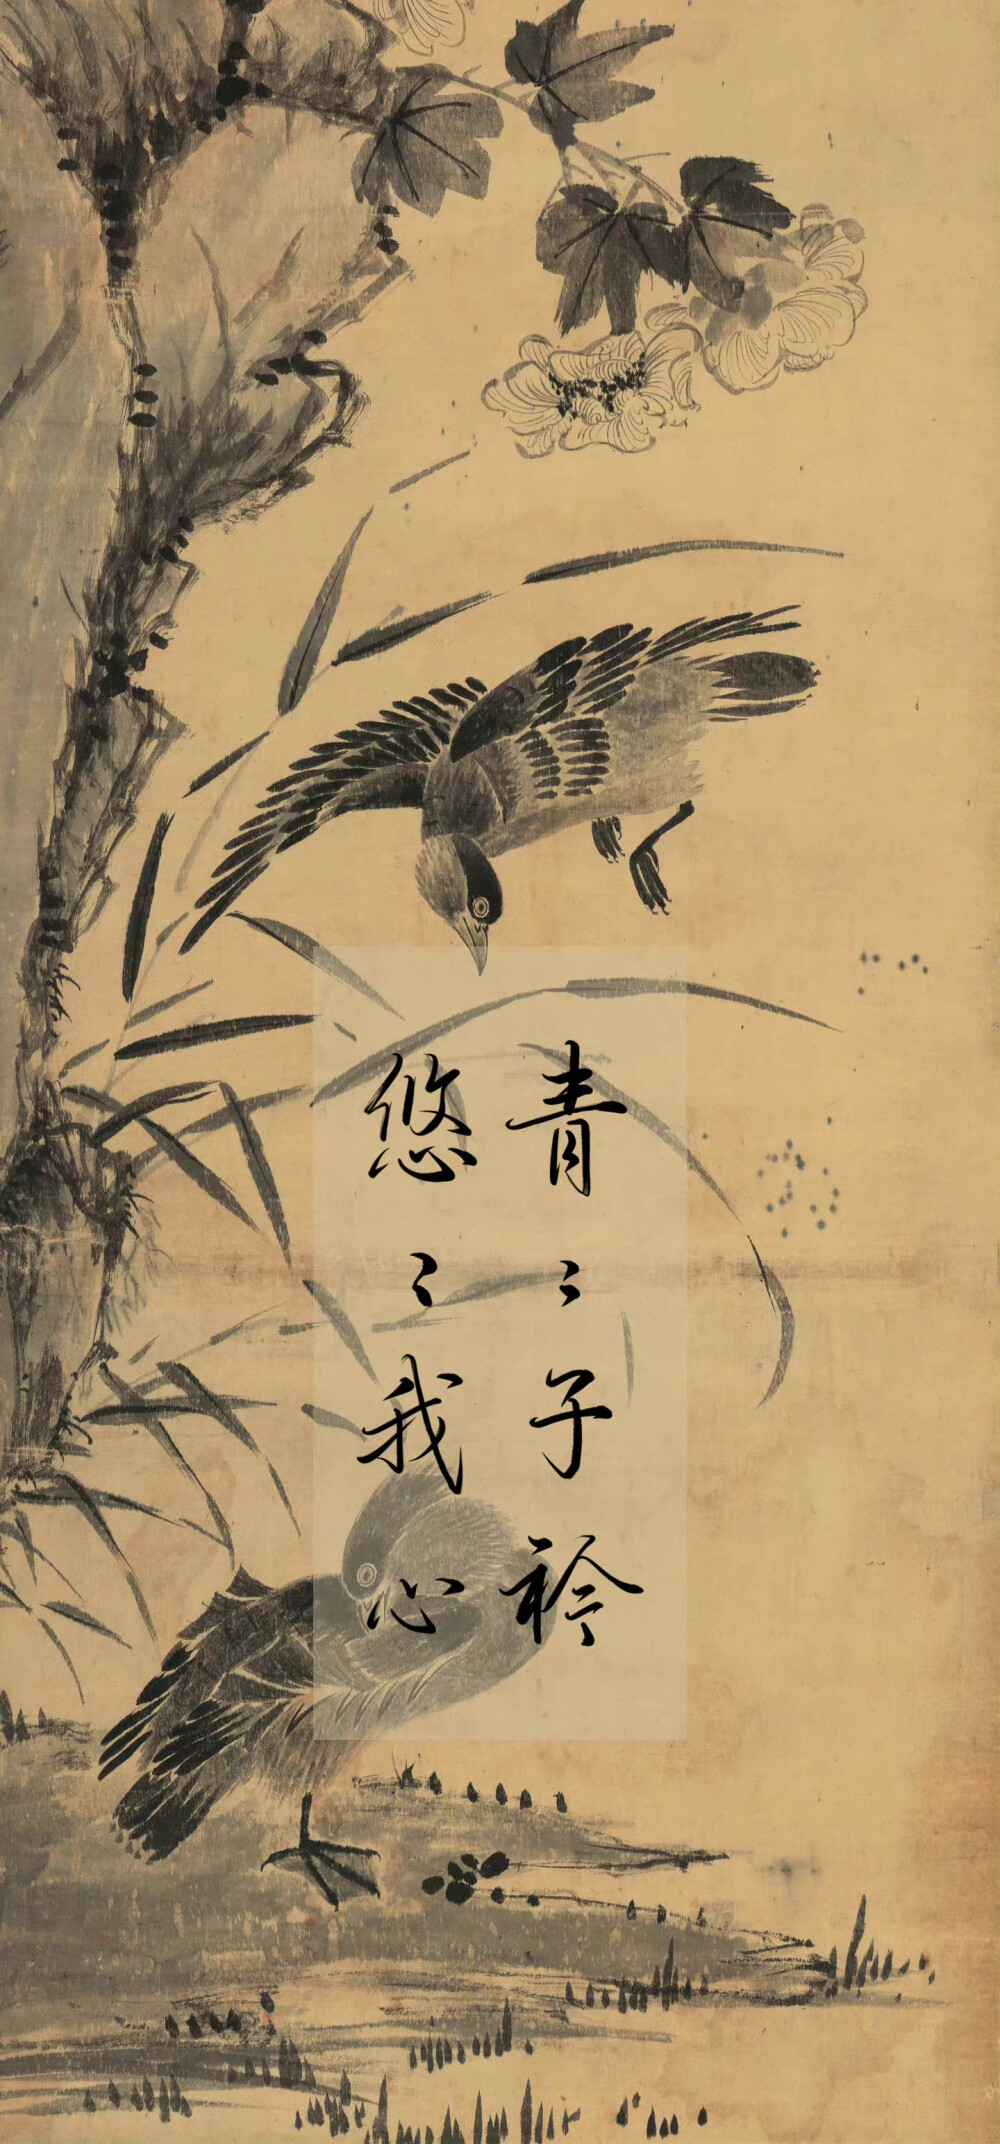 青〻子衿
悠〻我心